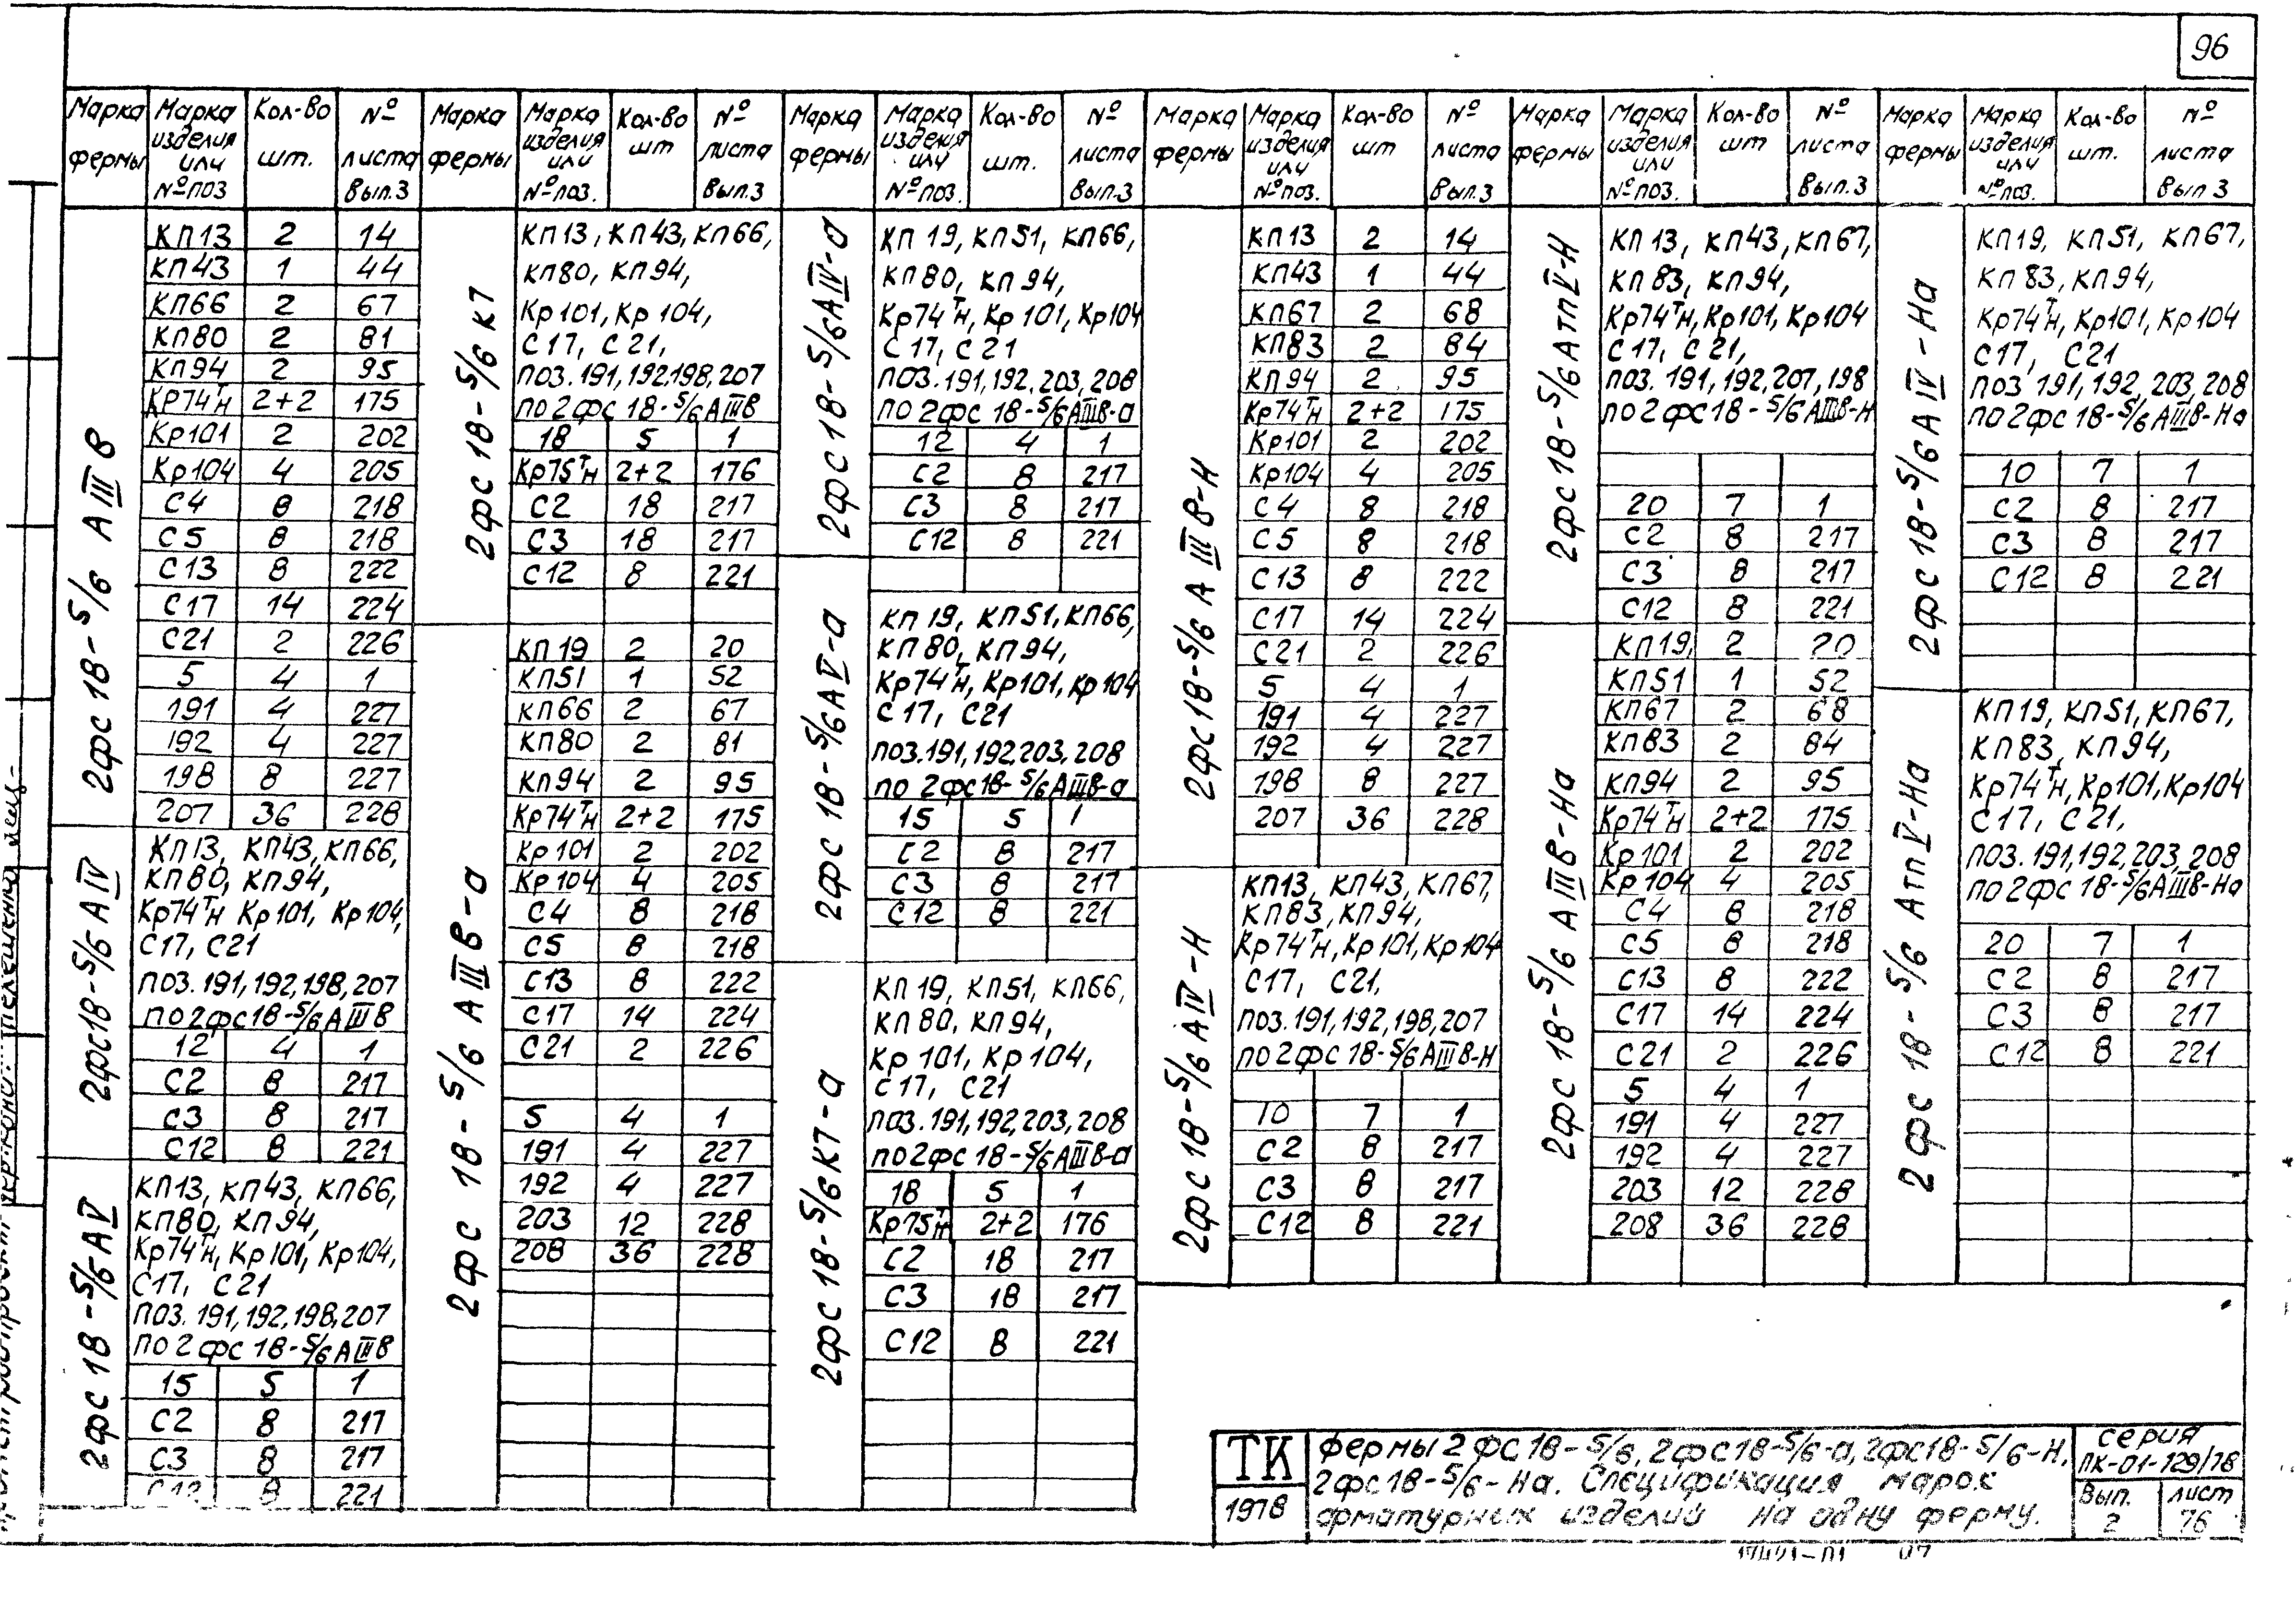 96
Марка фермы | Марка изделия или № поз | Кол-во шт. | № листа Вып.3
2фс 18-5/6 АIIIв
КП13 2 14
КП43 1 44
КП66 2 67
КП80 2 81
КП94 2 95
КР74тн 2+2 175
Кр101 2 202
Кр104 4 205
С4 8 218
С5 8 218
С13 8 222
С17 14 224
С21 2 226
5 4 1
191 4 227
192 4 227
198 8 227
207 36 228
2фс18-5/6 АIV
КП13, КП43, КП66,
КП80, КП94,
Кр74тн Кр101, Кр104,
С17, С21
поз. 191,192,198,207
по 2фс18-5/6 АIIIв
12 4 1
С2 8 217
С3 8 217
С12 8 221
2фс 18-5/6-АV
КП13, КП43, КП66,
КП80, КП94,
Кр74тн, Кр101, Кр104,
С17, С21
поз. 191,192,198,207
по 2фс 18-5/6 АIIIв
15 5 1
С2 8 217
С3 8 217
С12 8 221
Марка фермы | Марка изделия или № поз. | Кол-во шт | № листа Вып.3
2фс 18-5/6 К7
КП13, КП43, КП66,
КП80, КП94,
Кр101, Кр104,
С17, С21,
поз. 191,192,198,207
по 2фс 18-5/6 АIIIв
18 5 1
Кр75тн 2+2 176
С2 18 217
С3 18 217
С12 8 221
2фс 18-5/6 АIIIв-а
КП19 2 20
КП51 1 52
КП66 2 67
КП80 2 81
КП94 2 95
Кр74тн 2+2 175
Кр101 2 202
Кр104 4 205
С4 8 218
С5 8 218
С13 8 222
С17 14 224
С21 2 226
5 4 1
191 4 227
192 4 227
203 12 228
208 36 228
Марка фермы | Марка изделия или № поз. | Кол-во шт. | № листа Вып.3
2фс18-5/6АIV-а
КП19, КП51, КП66,
КП80, КП94,
Кр74тн, Кр101, Кр104
С17, С21
поз. 191,192,203,208
по 2фс 18-5/6АIIIв-а
12 4 1
С2 8 217
С3 8 217
С12 8 221
2фс 18-5/6АV-а
КП19, КП51, КП66,
КП80, КП94,
Кр74тн, Кр101, Кр104
С17, С21
поз. 191,192,203,208
по 2фс18-5/6АIIIв-а
15 5 1
С2 8 217
С3 8 217
С12 8 221
2фс 18-5/6 К7-а
КП19, КП51, КП66,
КП80, КП94,
Кр101, Кр104,
С17, С21
поз. 191,192,203,208
по 2фс 18-5/6АIIIв-а
18 5 1
Кр75тн 2+2 176
С2 18 217
С3 18 217
С12 8 221
Марка фермы | Марка изделия или № поз. | Кол-во шт | № листа Вып.3
2фс18-5/6 АIIIв-Н
КП13 2 14
КП43 1 44
КП67 2 68
КП83 2 84
КП94 2 95
Кр74тн 2+2 175
Кр101 2 202
Кр104 4 205
С4 8 218
С5 8 218
С13 8 222
С17 14 224
С21 2 226
5 4 1
191 4 227
192 4 227
198 8 227
207 36 228
2фс18-5/6 АIV-Н
КП13, КП43, КП67,
КП83, КП94,
Кр74тн, Кр101, Кр104
С17, С21,
поз. 191,192,198,207
по 2фс 18-5/6 АIIIв-Н
10 7 1
С2 8 217
С3 8 217
С12 8 221
Марка фермы | Марка изделия или № поз. | Кол-во шт | № листа Вып.3
2фс18-5/6АтпV-Н
КП13, КП43, КП67,
КП83, КП94,
Кр74тн, Кр101, Кр104
С17, С21,
поз. 191,192,207,198
по 2фс18-5/6АIIIв-Н
20 7 1
С2 8 217
С3 8 217
С12 8 221
2фс 18-5/6 АIIIв-На
КП19, 2 20
КП51 1 52
КП67 2 68
КП83 2 84
КП94 2 95
Кр74тн 2+2 175
Кр101 2 202
Кр104 4 205
С4 8 218
С5 8 218
С13 8 222
С17 14 224
С21 2 226
5 4 1
191 4 227
192 4 227
203 12 228
208 36 228
Марка фермы | Марка изделия или № поз. | Кол-во шт. | № листа Вып 3
2фс 18-5/6АIV-На
КП19, КП51, КП67,
КП83, КП94,
Кр74тн, Кр101, Кр104
С17, С21
поз 191,192,203,208
по 2фс 18-5/6 АIIIв-На
10 7 1
С2 8 217
С3 8 217
С12 8 221
2фс 18-5/6 АтпV-На
КП19, КП51, КП67,
КП83, КП94,
Кр74тн, Кр101, Кр104
С17, С21,
поз. 191,192,203,208
по 2фс 18-5/6АIIIв-На
20 7 1
С2 8 217
С3 8 217
С12 8 221
ТК
1978
Фермы 2ФС18-5/6, 2фс18-5/6-а, 2фс18-5/6-Н,
2фс18-5/6-На. Спецификация марок
арматурных изделий на одну ферму.
серия
ПК-01-129/78
Вып. 2
лист 76